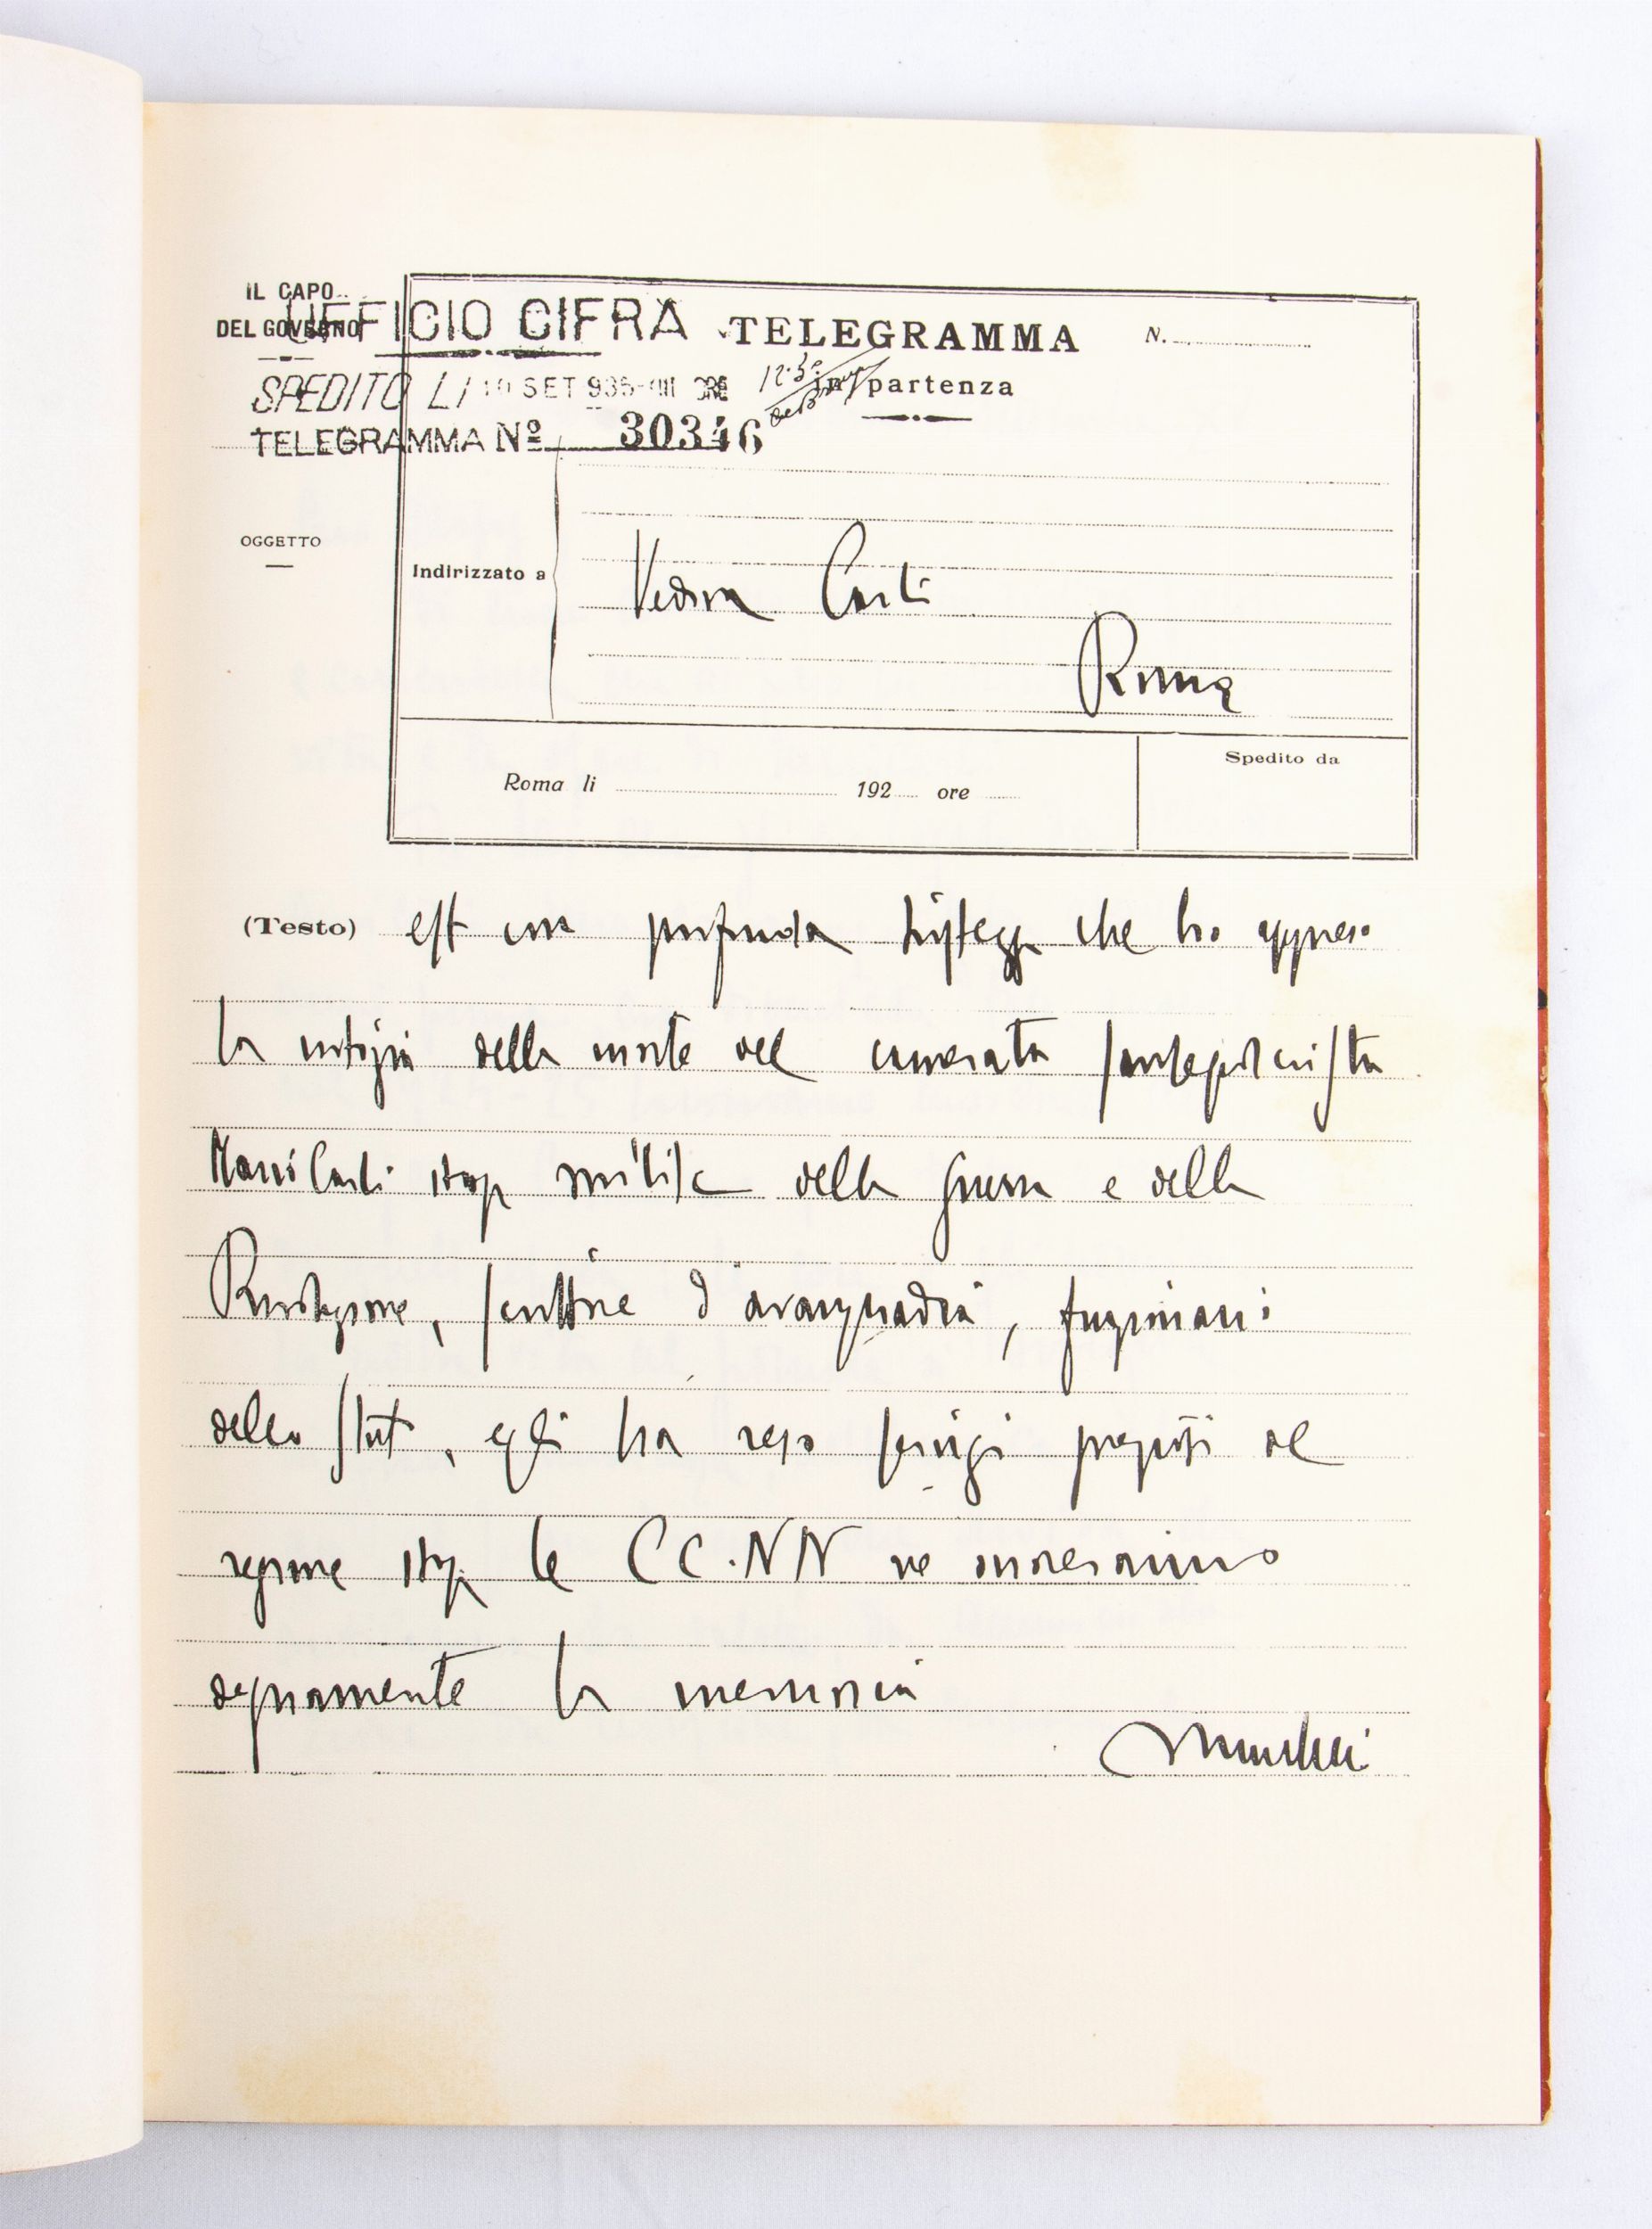 IL CAPO
DEL GOVERNO
UFFICIO CIFRA
TELEGRAMMA N.
SPEDITO LI 10 SET 935-XIII ORE
in partenza
TELEGRAMMA Nº 30346
OGGETTO
Indirizzato a
Vedova Carli
Roma
Roma li 192 ore
Spedito da
(Testo) est con profonda tristezza che ho appreso
la notizia della morte del camerata sansepolcrista
Mario Carli stop milite della guerra e della
Rivoluzione, scrittore d'avanguardia, funzionario
dello Stato, egli ha reso servigi preziosi al
regime stop le CC.NN ne onoreranno
degnamente la memoria
Mussolini